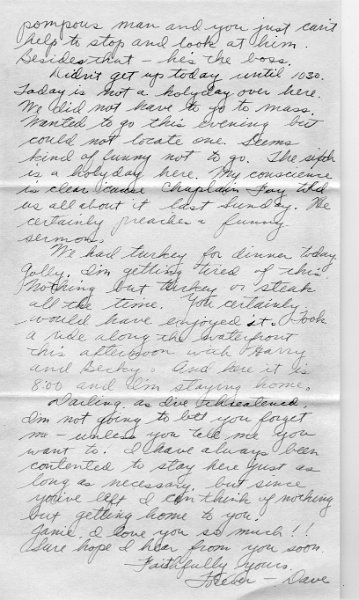 pompous man and you just can't
help to stop and look at him.
Besides that - he's the boss.
Didn't get up today until 1030.
Today is not a holyday over here.
We did not have to go to mass.
Wanted to go this evening but
could not locate one. Seems
kind of funny not to go. The sixth
is a holyday here. My conscience
is clear 'cause Chaplain Fay told
us all about it last Sunday. He
certainly preaches a funny
sermon.
We had turkey for dinner today
Golly, I'm getting tired of this
nothing but turkey or steak
all the time. You certainly
would have enjoyed it. Took
a ride along the waterfront
this afternoon with Harry
and Becky. And here it is
8:00 and I'm staying home.
Darling, as I've threatened
I'm not going to let you forget
me - unless you tell me you
want to. I have always been
contented to stay here just as
long as necessary, but since
you've left I can think of nothing
but getting home to you.
Janie, I love you so much!!
Sure hope I hear from you soon.
Faithfully yours.
Forever - Dave